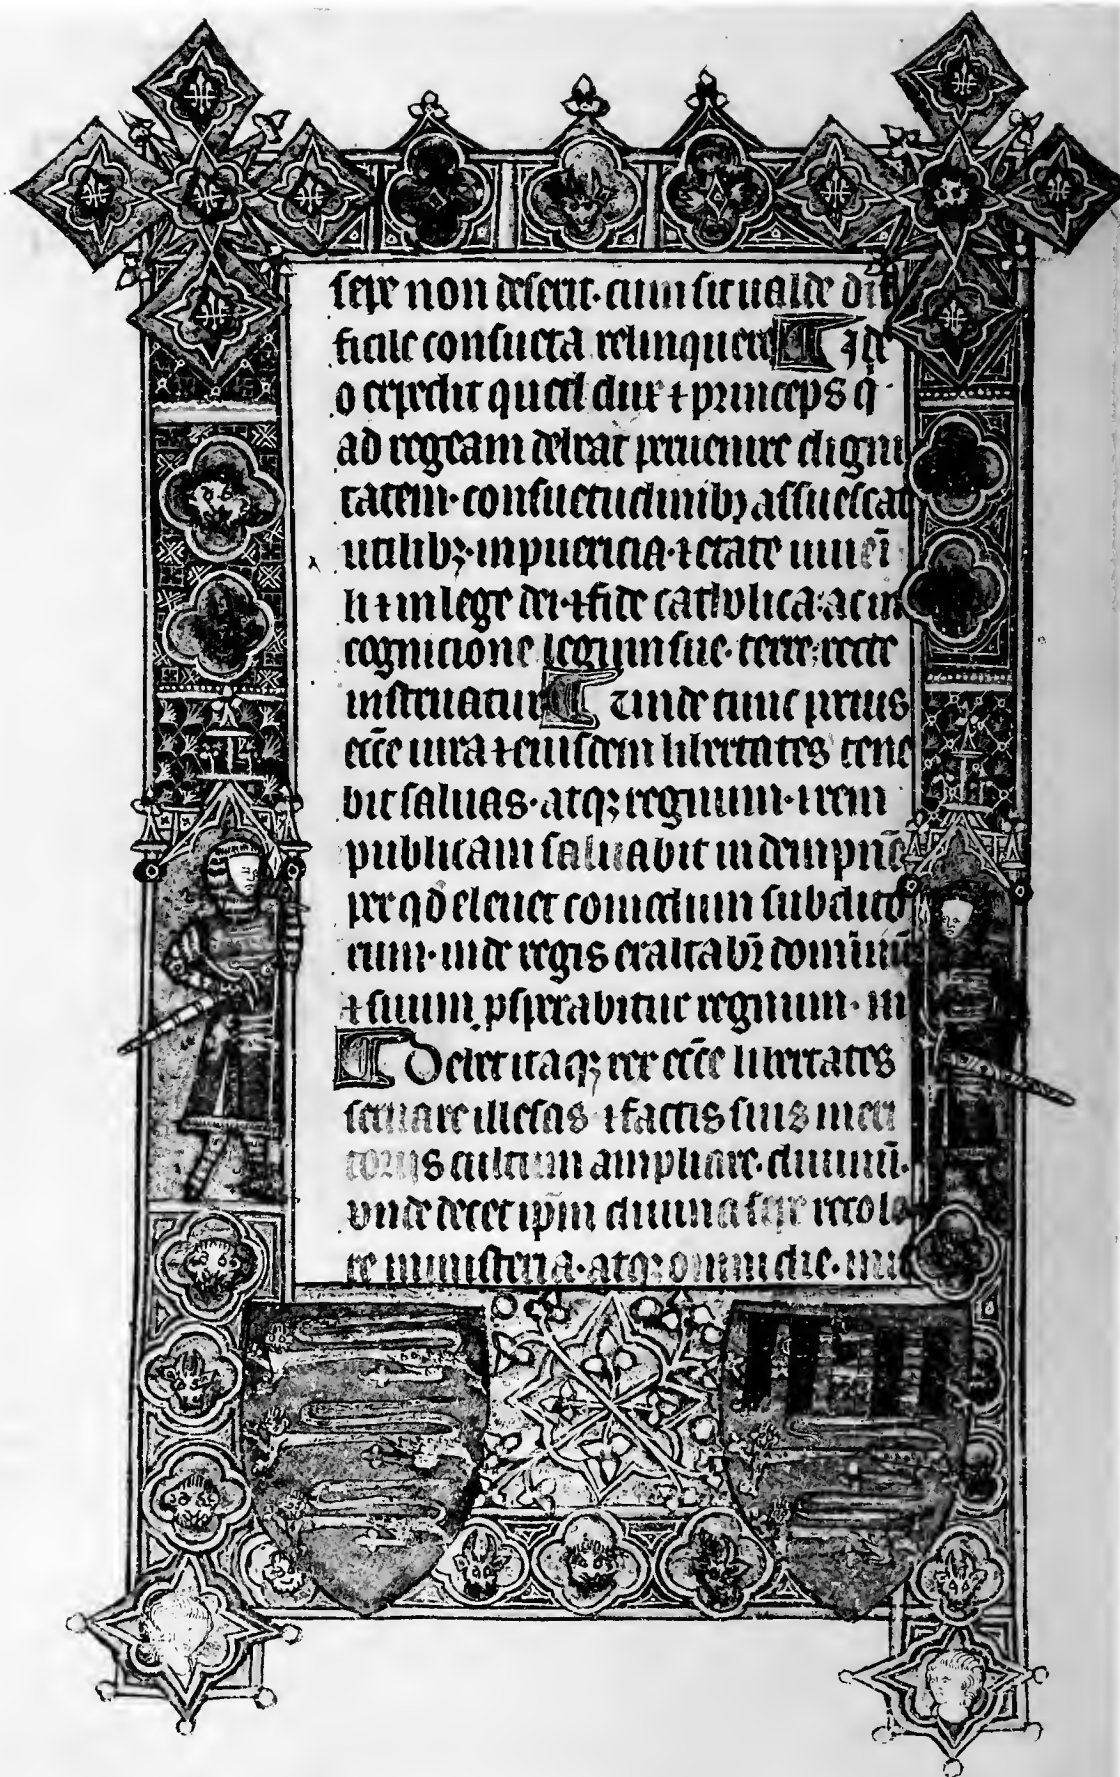 sepe non deserit· cum sit ualde dif
ficile consueta relinquere Ide
o expedit quod dux ⁊ princeps q̄
ad regeam debeat peruenire digni
tatem· consuetudinibꝫ assuescat
utilibꝫ· in puericia· ⁊ etate iuuēi
li ⁊ in lege dei· ⁊ fide catholica· ac in
cognicione legum sue· terre· recte
instruatur Et inde tunc prius
ecc̄e iura ⁊ eiusdem libertates tene
bit saluas· atqꝫ regnum· ⁊ rem
publicam saluabit indempnē
per qd̄ eleuet comodum subdito
rum· inde regis exaltabr̄ dominiū
⁊ suum ꝓsperabitur regnum· in
Debet itaqꝫ rex ecc̄e libertates
seruare illesas ⁊ factis suis meri
torijs cultum ampliare· diuinū·
vnde decet ip̄m diuina sepe recole
re ministeria· atqꝫ omni die·